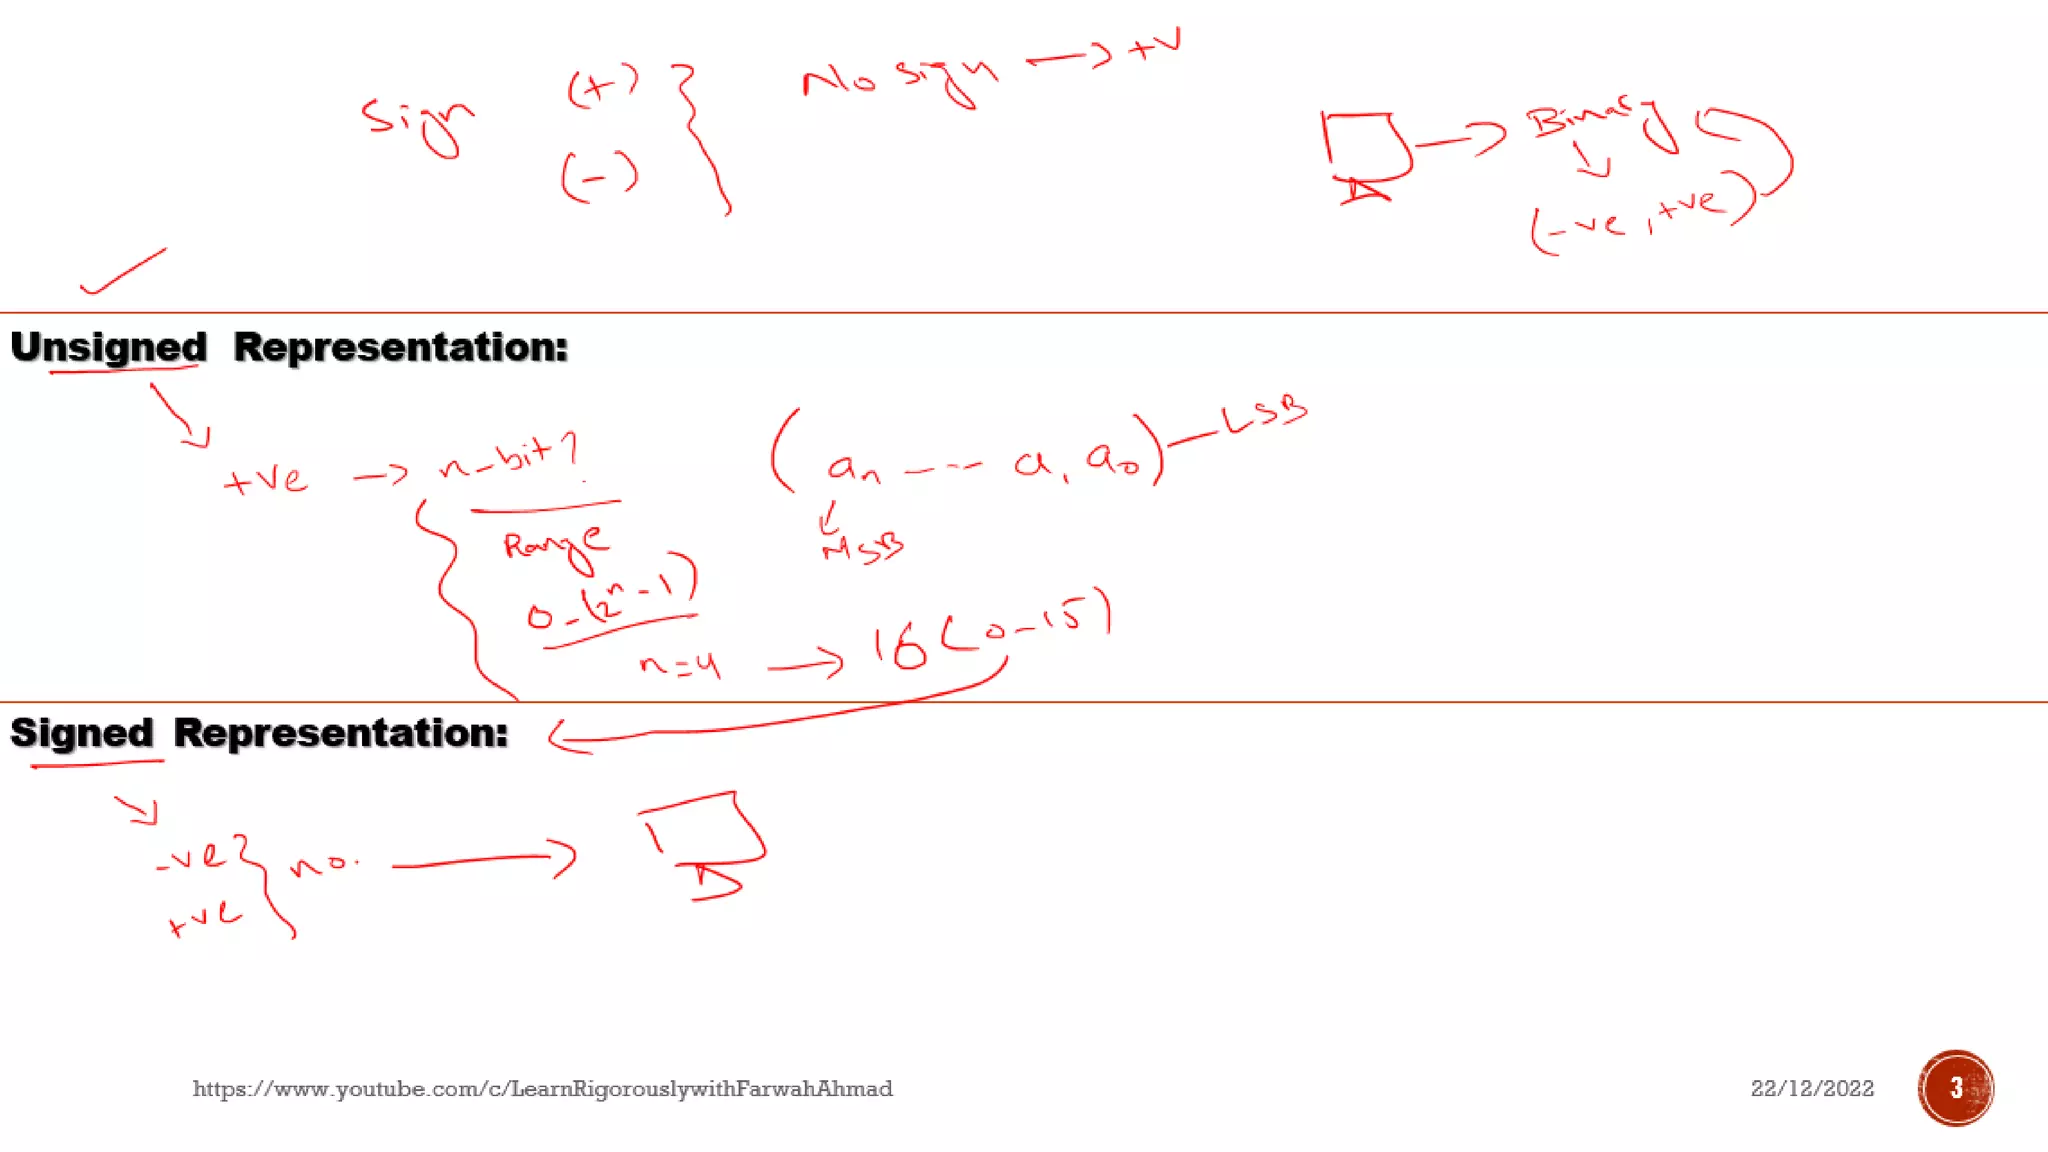 Sign (+) No sign → +v
(-)
→ Binary
(-ve, +ve)
Unsigned Representation:
+ve → n-bit?
(an ---- a1 a0) — LSB
MSB
Range
0-(2ⁿ-1)
n=4 → 16 (0-15)
Signed Representation:
-ve
+ve
no. →
https://www.youtube.com/c/LearnRigorouslywithFarwahAhmad 22/12/2022 3